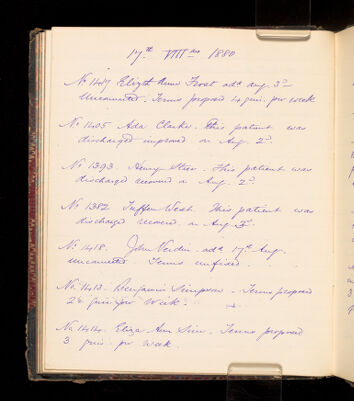 17th VIIImo 1880
No 1417 Elizth Anne Frost adm Aug. 3rd
Unconnected. Terms proposed 4 guin. per week
No 1405 Ada Clarke. This patient was
discharged improved on Aug. 2d.
No 1393 Henry This patient was
discharged recovered on Aug. 2d
No 1382 Tuffen West. This patient was
discharged recovered on Aug. 3d.
No 1418. John adm 17th Aug.
unconnected Terms unfixed.
No. 1413. Benjamin Simpson. Terms proposed
2½ guin per Week.
No. 1414. Eliza Ann Sim. Terms proposed
3 guin. per Week.